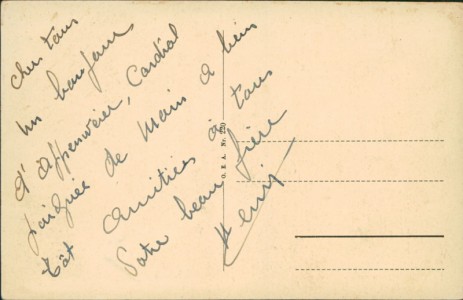 Cher tous
un bonjour
d'Appenweier, Cordial
poignée de Main a bien
tôt Amitiés à tous
Votre beau frère
Henri
G. E. A. Nr.